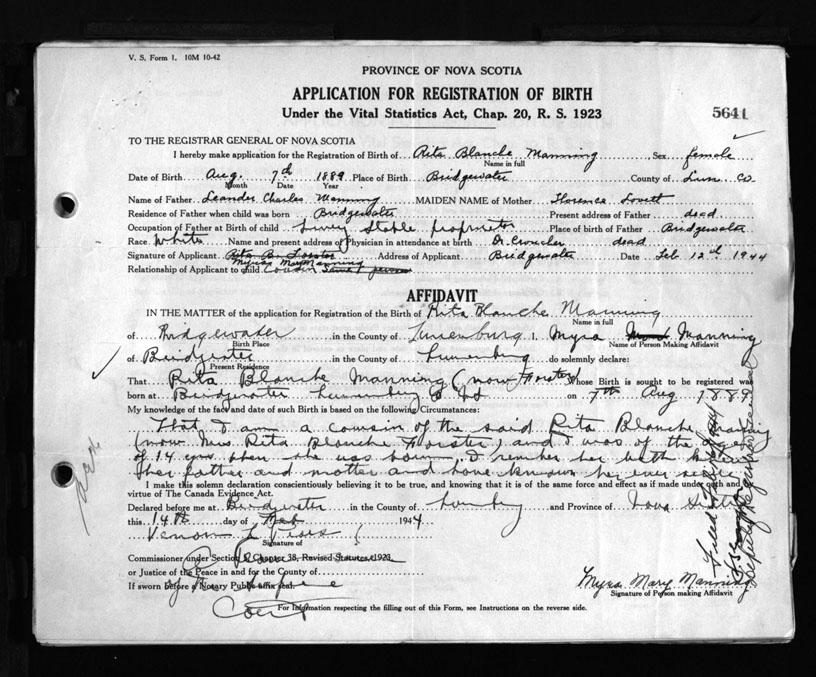 V. S. Form 1. 10M 10-42
PROVINCE OF NOVA SCOTIA
APPLICATION FOR REGISTRATION OF BIRTH
Under the Vital Statistics Act, Chap. 20, R. S. 1923
5641
TO THE REGISTRAR GENERAL OF NOVA SCOTIA
I hereby make application for the Registration of Birth of Rita Blanche Manning Sex female
Name in full
Date of Birth Aug. 7th 1889 Place of Birth Bridgewater County of Lun Co
Month Date Year
Name of Father Leander Charles Manning MAIDEN NAME of Mother Florence Lovett
Residence of Father when child was born Bridgewater Present address of Father dead
Occupation of Father at Birth of child Livery Stable proprietor Place of birth of Father Bridgewater
Race White Name and present address of Physician in attendance at birth Dr. Croucher dead
Signature of Applicant Rita B. Forster Address of Applicant Bridgewater Date Feb 12th 1944
Myra Mary Manning
Relationship of Applicant to child Cousin Same person
AFFIDAVIT
IN THE MATTER of the application for Registration of the Birth of Rita Blanche Manning
Name in full
of Bridgewater in the County of Lunenburg I, Myra Manning
Birth Place Name of Person Making Affidavit
of Bridgewater in the County of Lunenburg do solemnly declare:
Present Residence
That Rita Blanche Manning (now Forster) Whose Birth is sought to be registered was
born at Bridgewater Lunenburg Co NS on 7th Aug 1889
My knowledge of the fact and date of such Birth is based on the following Circumstances:
That I am a cousin of the said Rita Blanche Manning
(now Mrs. Rita Blanche Forster) and I was of the age
of 14 yrs when she was born, I remember her birth
her father and mother and have known her ever since
I make this solemn declaration conscientiously believing it to be true, and knowing that it is of the same force and effect as if made under oath and
virtue of The Canada Evidence Act.
Declared before me at Bridgewater in the County of and Province of Nova Scotia
this 14th day of Feb 1944
Vernon L Pearson
Signature of
Commissioner under Section Chapter 38, Revised Statutes 1923
or Justice of the Peace in and for the County of
of the Supreme
If sworn before a Notary Public affix seal.
Court
Myra Mary Manning
Signature of Person making Affidavit
For Information respecting the filling out of this Form, see Instructions on the reverse side.